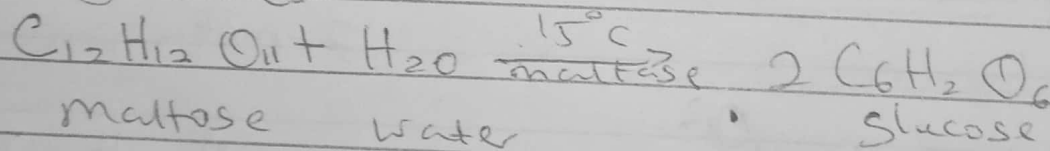 C₁₂H₁₂O₁₁ + H₂O 15°C → maltase 2 C₆H₂O₆
maltose water glucose